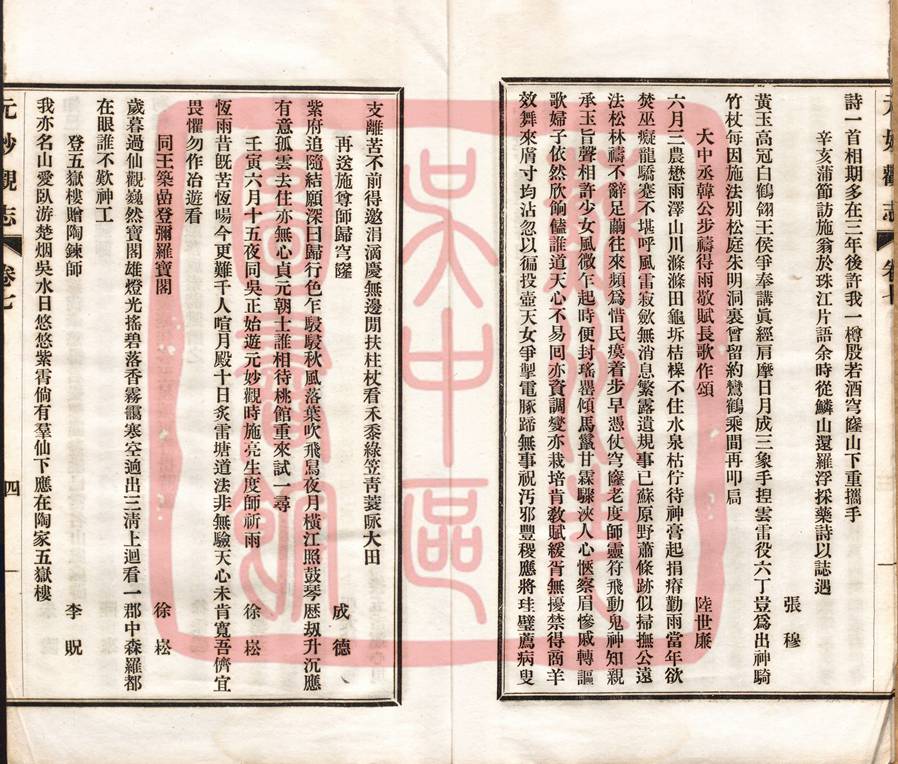 詩一首相期多在三年後許我一樽殷若酒穹窿山下重攜手
辛亥蒲節訪施翁於珠江片語余時從鱗山還羅浮採藥詩以誌遇
張穆
黃玉高冠白鶴翎王侯爭奉講眞經肩摩日月成三象手捏雲雷役六丁豈爲出神騎
竹杖每因施法別松庭朱明洞裏曾留約鸞鶴乘間再叩扃
大中丞韓公步禱得雨敬賦長歌作頌
陸世廉
六月三農懋雨澤山川滌滌田龜坼桔橰不住水泉枯佇待神膏起捐瘠勤雨當年欲
焚巫癡龍驕蹇不堪呼風雷寂歛無消息繁露遺規事已蘇原野蕭條跡似掃撫公遠
法松林禱不辭足繭往來頻爲惜民瘼着步早憑仗穹窿老度師靈符飛動鬼神知親
承玉旨聲相許少女風微乍起時便封瑤罌傾馬鬣甘霖驟浹人心愜察眉慘戚轉謳
歌婦子依然欣餉饁誰道天心不易回亦資調燮亦栽培肯教賦緩胥無擾禁得商羊
效舞來膚寸均沾忽以徧投壺天女爭掣電豚蹄無事祝汚邪豐稷應將珪璧薦病叟
支離苦不前得邀涓滴慶無邊閒扶柱杖看禾黍綠笠靑蓑詠大田
再送施尊師歸穹窿
成德
紫府追隨結願深曰歸行色乍駸駸秋風落葉吹飛舄夜月橫江照鼓琴歷刼升沉應
有意孤雲去住亦無心貞元朝士誰相待桃館重來試一尋
壬寅六月十五夜同吳正始遊元妙觀時施亮生度師祈雨
徐崧
恆雨昔旣苦恆暘今更難千人喧月殿十日炙雷塘道法非無驗天心未肯寬吾儕宜
畏懼勿作冶遊看
同王築嵒登彌羅寶閣
徐崧
歲暮過仙觀巍然寶閣雄燈光搖碧落香霧靄寒空逈出三淸上迴看一郡中森羅都
在眼誰不歎神工
登五嶽樓贈陶鍊師
李貺
我亦名山愛臥游楚烟吳水日悠悠紫霄倘有羣仙下應在陶家五嶽樓
元妙觀志
卷七
四
吳中區